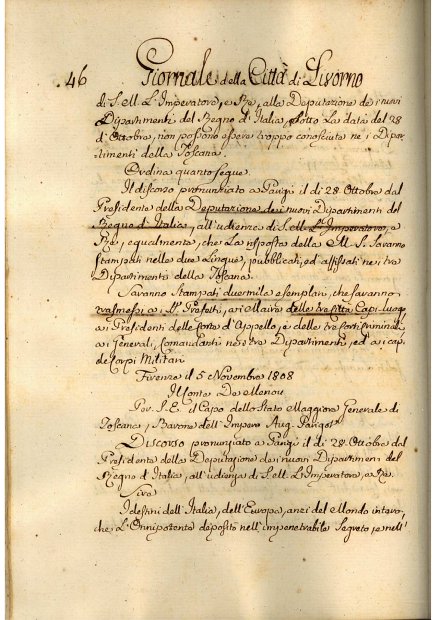 46 Giornale della Città di Livorno
di S. M. L'Imperatore, e Re, alla Deputazione de i nuovi
Dipartimenti del Regno d'Italia, sotto La data del 28
d'Ottobre, non possono essere troppo conosciute ne i Dipar-
timenti della Toscana.
Ordina quanto segue.
Il discorso pronunziato a Parigi il di 28. Ottobre dal
Presidente della Deputazione de i nuovi Dipartimenti del
Regno d'Italia, all'udienze di S. M. L'Imperatore, e
Re, egualmente, che La risposta della M. S. Saranno
stampati nelle due Lingue, pubblicati, ed affissati ne i tre
Dipartimenti della Toscana.
Saranno Stampati duemila esemplari, che saranno
trasmessi a i Sig.ri Prefetti, a i Maires delle tre Città Capi-luogo,
a i Presidenti delle Corte d'Appello, e delle tre Corti Criminali,
a i Generali, Comandanti ne i tre Dipartimenti, ed a i capi
de Corpi Militari
Firenze il 5 Novembre 1808
Il Conte De Menou
Per S. E. il Capo dello Stato Maggiore Generale di
Toscana, Barone dell'Impero Aug.
Discorso pronunziato a Parigi il di 28. Ottobre dal
Presidente della Deputazione de i nuovi Dipartimenti del
Regno d'Italia, all'udienza di S. M. L'Imperatore, e Re.
Sire
I destini dell'Italia, dell'Europa, anzi del Mondo intero,
che L'Onnipotente depositò nell'impenetrabile Segreto, e nell'